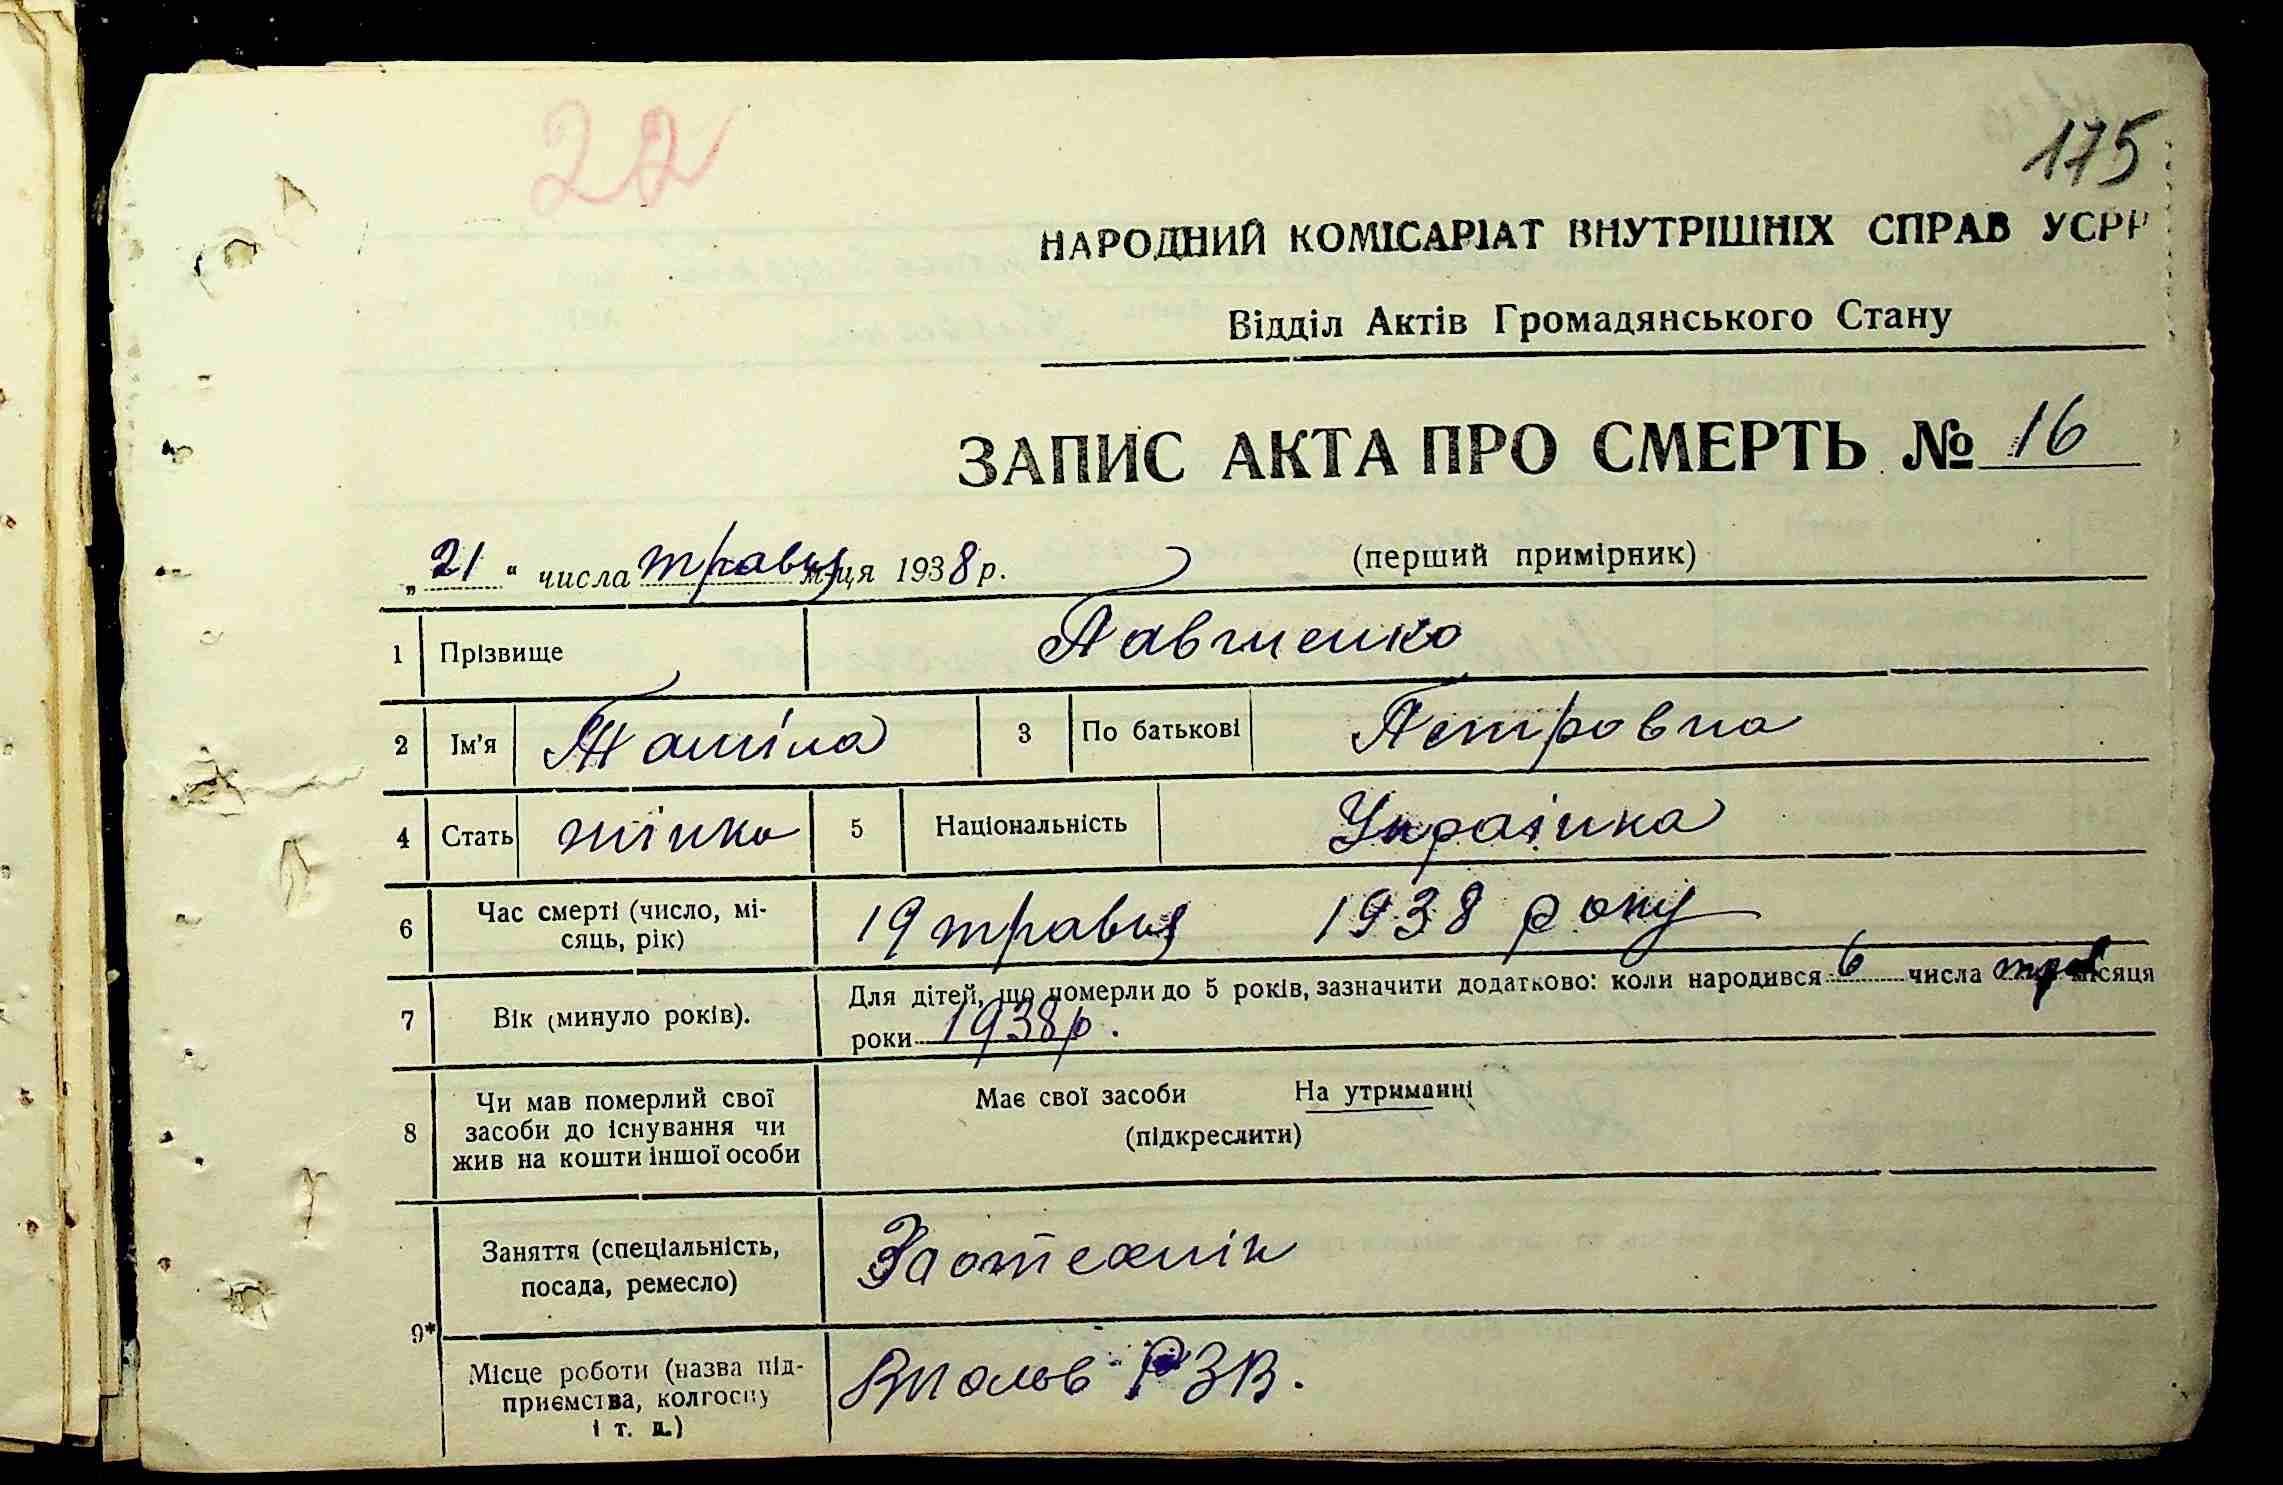 22
175
НАРОДНИЙ КОМІСАРІАТ ВНУТРІШНІХ СПРАВ УСРР
Відділ Актів Громадянського Стану
ЗАПИС АКТА ПРО СМЕРТЬ № 16
„21“ числа травня м-ця 1938 р. (перший примірник)
1 Прізвище Павшенко
2 Ім'я 3 По батькові Петровна
4 Стать жінка 5 Національність Українка
6 Час смерті (число, мі-
сяць, рік) 19 травня 1938 року
7 Вік (минуло років). Для дітей, що померли до 5 років, зазначити додатково: коли народився 6 числа трав місяця
роки 1938 р.
8 Чи мав померлий свої
засоби до існування чи
жив на кошти іншої особи
Має свої засоби На утриманні
(підкреслити)
9* Заняття (спеціальність,
посада, ремесло) Заотехнік
Місце роботи (назва під-
приємства, колгоспу
і т. д.) РЗВ.